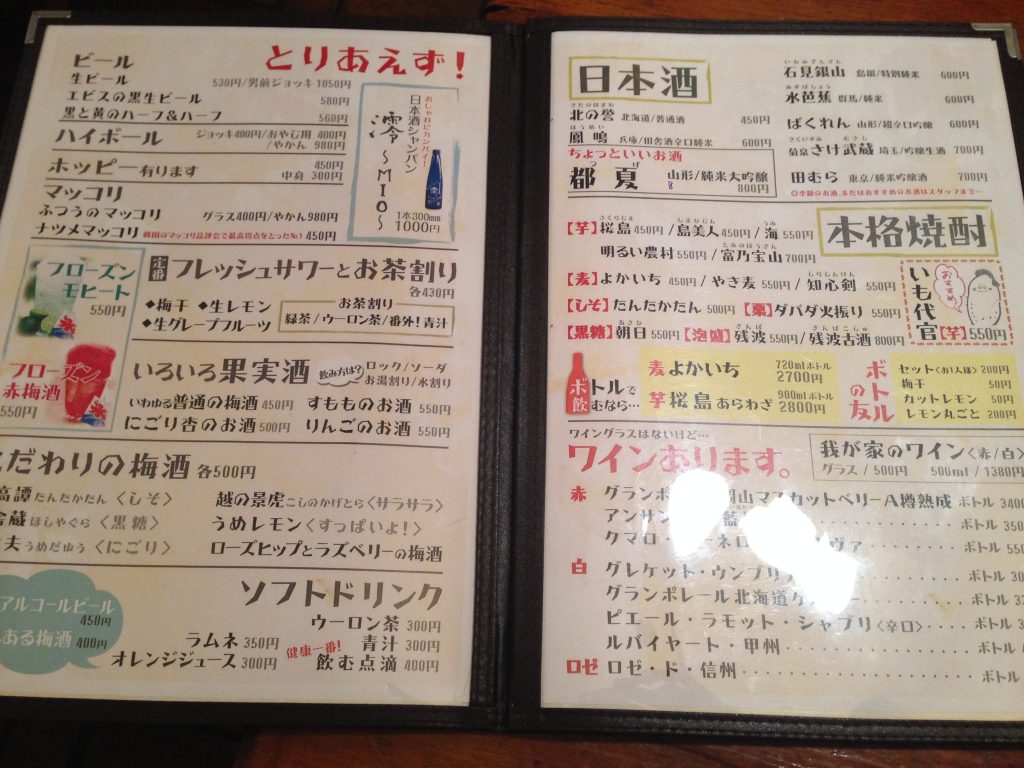 とりあえず!
ビール
生ビール 530円/男前ジョッキ 1050円
エビスの黒生ビール 580円
黒と黄のハーフ&ハーフ 560円
ハイボール ジョッキ400円/おやじ用 400円
/やかん 980円
ホッピー有ります 450円
中身 300円
マッコリ
ふつうのマッコリ グラス400円/やかん980円
ナツメマッコリ 韓国のマッコリ品評会で最高得点をとった№1 450円
おしゃれにカンパイ!
日本酒シャンパン
澪 ~MIO~
1本300mm
1000円
フローズン
モヒート
550円
定番 フレッシュサワーとお茶割り
各430円
◆梅干 ◆生レモン
◆生グレープフルーツ
お茶割り
緑茶/ウーロン茶/番外!青汁
フローズン
赤梅酒
550円
いろいろ果実酒 飲み方は? ロック/ソーダ
お湯割り/水割り
いわゆる普通の梅酒 450円 すもものお酒 550円
にごり杏のお酒 500円 りんごのお酒 550円
だわりの梅酒 各500円
高譚 たんたかたん 〈しそ〉 越の景虎 こしのかげとら 〈サラサラ〉
蔵 ほしやぐら 〈黒糖〉 うめレモン 〈すっぱいよ!〉
夫 うめだゆう 〈にごり〉 ローズヒップとラズベリーの梅酒
アルコールビール
450円
ある梅酒 400円
ソフトドリンク
ウーロン茶 300円
ラムネ 350円 健康一番! 青汁 300円
オレンジジュース 300円 飲む点滴 400円
日本酒
きたのほまれ
北の誉 北海道/普通酒 450円
ほうめい
鳳鳴 兵庫/田舎酒辛口純米 600円
ちょっといいお酒
げっ
都夏 山形/純米大吟醸
800円
いわみぎんざん
石見銀山 島根/特別純米 600円
みずばしょう
水芭蕉 群馬/純米 600円
ばくれん 山形/超辛口吟醸 600円
きくいずみ むさし
菊泉 さけ武蔵 埼玉/吟醸生酒 700円
田むら 東京/純米吟醸酒 700円
◎季節のお酒、またはおすすめのお酒はスタッフまで…
本格焼酎
さくらじま しまびじん うみ
【芋】桜島 450円 /島美人 450円 /海 550円
とみのほうざん
明るい農村 550円 /富乃宝山 700円
ちしんけん
【麦】よかいち 450円 /やき麦 550円 /知心剣 550円
【しそ】たんたかたん 500円 【栗】ダバダ火振り 550円
あさひ ざんぱ ざんぱこしゅ
【黒糖】朝日 550円 【泡盛】残波 550円 /残波古酒 800円
おすすめ
いも代官【芋】550円
ボトルで
飲むなら…
麦 よかいち 720mlボトル
2700円
芋 桜島 あらわざ 900mlボトル
2800円
ボトルの友
セット〈お1人様〉 200円
梅干 50円
カットレモン 50円
レモン丸ごと 200円
ワイングラスはないけど…
ワインあります。
我が家のワイン〈赤/白〉
グラス/500円 500ml/1380円
赤 グランポ 岡山マスカットベリーA樽熟成 ボトル 3400
アンサン 藍 ボトル 350
クマロ・ ーネロ ヴァ ボトル 550
白 グレケット・ウンブリ ボトル 30
グランポレール北海道ケ ボトル
ピエール・ラモット・シャブリ〈辛口〉 ボトル
ルバイヤート・甲州 ボトル
ロゼ ロゼ・ド・信州 ボトル